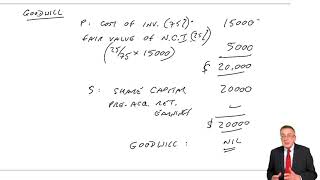 GOODWILL
P: COST OF INV. (75%) 15000
FAIR VALUE OF N.C.I (25%)
(25/75 × 15000) 5000
$ 20,000
S: SHARE CAPITAL 20000
PRE-ACQ RET. EARNINGS –
$ 20000
GOODWILL: NIL